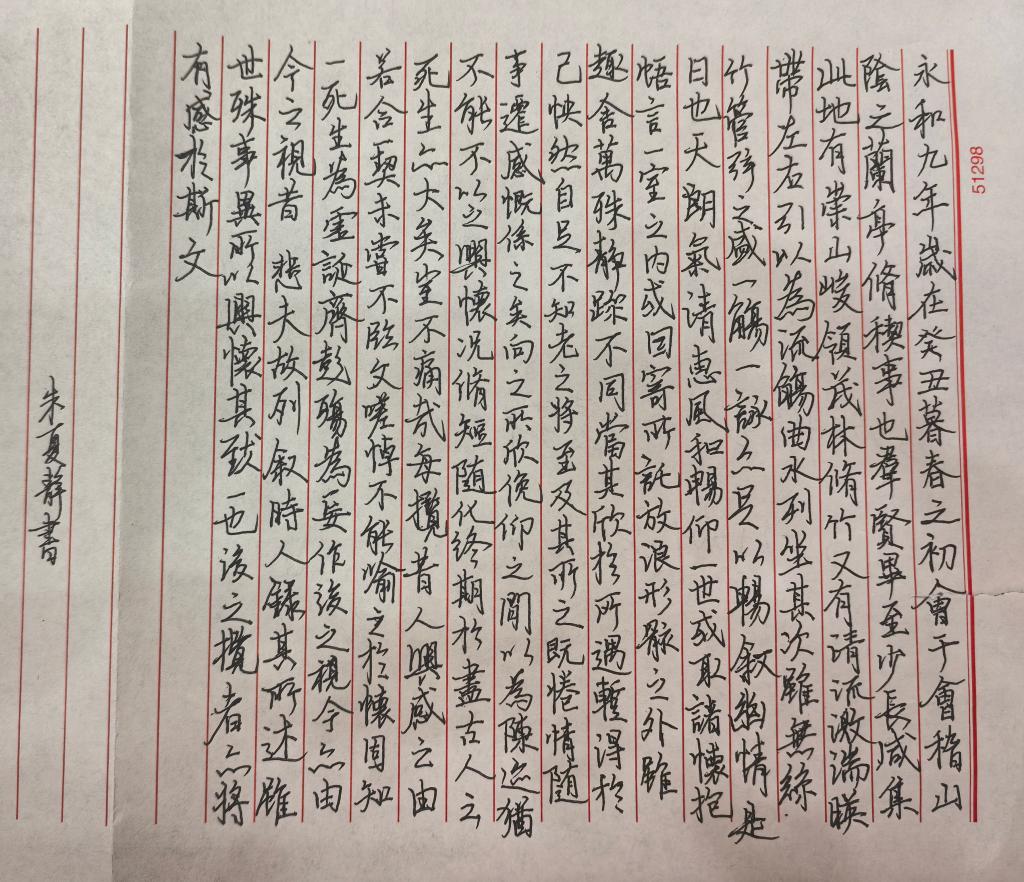 永和九年歲在癸丑暮春之初會于會稽山
陰之蘭亭脩稧事也羣賢畢至少長咸集
此地有崇山峻領茂林脩竹又有清流激湍暎
帶左右引以為流觴曲水列坐其次雖無絲
竹管弦之盛一觴一詠亦足以暢叙幽情是
日也天朗氣清惠風和暢仰一世或取諸懷抱
悟言一室之内或因寄所託放浪形骸之外雖
趣舍萬殊静躁不同當其欣於所遇暫得於
己怏然自足不知老之將至及其所之既惓情随
事遷感慨係之矣向之所欣俛仰之閒以為陳迹猶
不能不以之興懷况脩短随化終期於盡古人之
死生亦大矣豈不痛哉每攬昔人興感之由
若合契未嘗不臨文嗟悼不能喻之於懷固知
一死生為虛誕齊彭殤為妄作後之視今亦由
今之視昔悲夫故列叙時人錄其所述雖
世殊事異所以興懷其致一也後之攬者亦將
有感於斯文
朱夏静書
51298